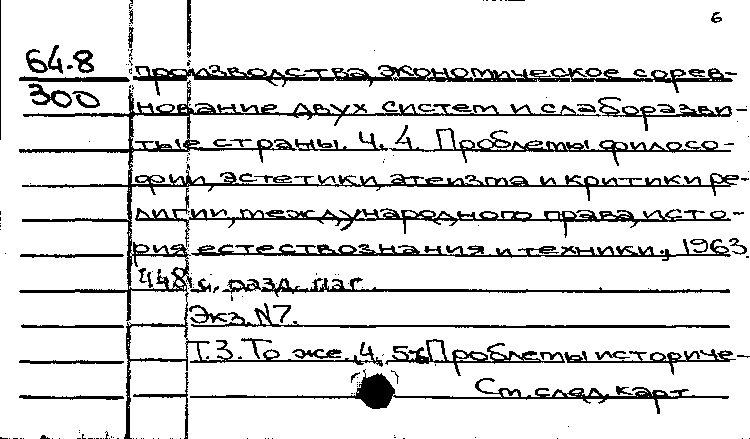 6
64.8
300
производства, экономическое сорев-
нование двух систем и слаборазви-
тые страны. Ч. 4. Проблемы филосо-
фии, эстетики, атеизма и критики ре-
лигии, международного права, исто-
рия естествознания и техники., 1963.
448 с. разд. паг.
Экз. N7.
Т. 3. То же. Ч. 5-6 Проблемы историче-
См. след. карт.